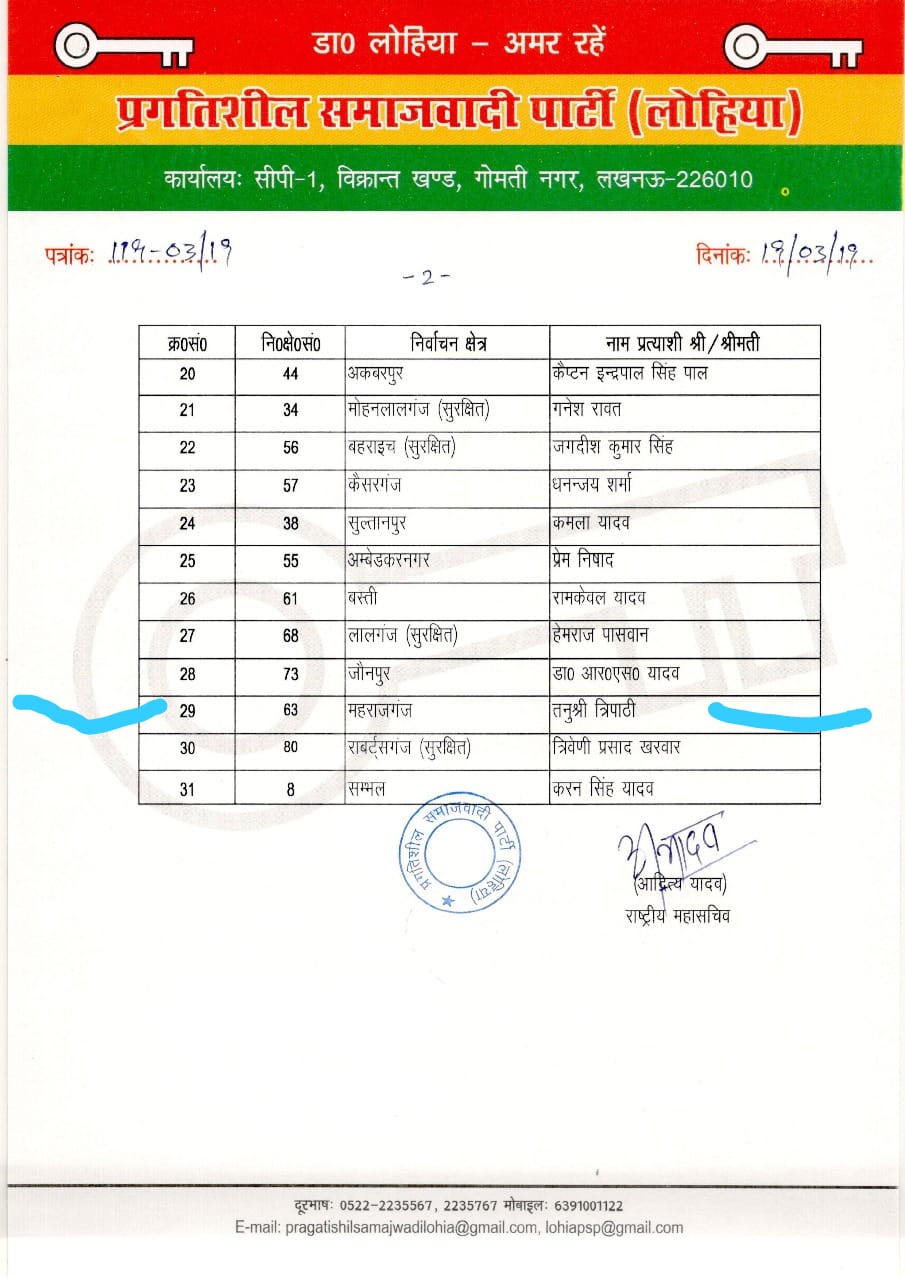 डा0 लोहिया – अमर रहें
प्रगतिशील समाजवादी पार्टी (लोहिया)
कार्यालयः सीपी-1, विक्रान्त खण्ड, गोमती नगर, लखनऊ-226010
पत्रांकः 119-03/19 दिनांकः 19/03/19
-2-
क्र0सं0 नि0क्षे0सं0 निर्वाचन क्षेत्र नाम प्रत्याशी श्री/श्रीमती
20 44 अकबरपुर कैप्टन इन्द्रपाल सिंह पाल
21 34 मोहनलालगंज (सुरक्षित) गनेश रावत
22 56 बहराइच (सुरक्षित) जगदीश कुमार सिंह
23 57 कैसरगंज धनन्जय शर्मा
24 38 सुल्तानपुर कमला यादव
25 55 अम्बेडकरनगर प्रेम निषाद
26 61 बस्ती रामकेवल यादव
27 68 लालगंज (सुरक्षित) हेमराज पासवान
28 73 जौनपुर डा0 आर0एस0 यादव
29 63 महराजगंज तनुश्री त्रिपाठी
30 80 राबर्ट्सगंज (सुरक्षित) त्रिवेणी प्रसाद खरवार
31 8 सम्भल करन सिंह यादव
प्रगतिशील समाजवादी पार्टी (लोहिया)
(आदित्य यादव)
राष्ट्रीय महासचिव
दूरभाषः 0522-2235567, 2235767 मोबाइलः 6391001122
E-mail: pragatishilsamajwadilohia@gmail.com, lohiapsp@gmail.com